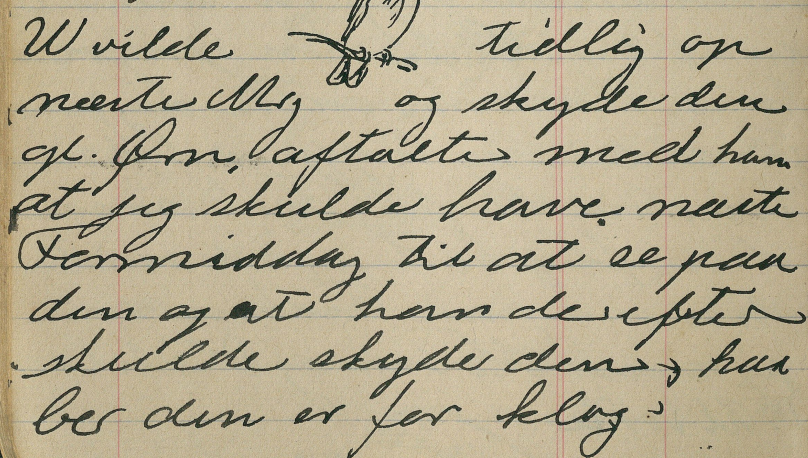 W vilde tidlig op
næste Mrg og skyde den
gl. Ørn, aftalte med ham
at jeg skulde have næste
Formiddag til at se paa
den og at han derefter
skulde skyde den, haa
ber den er for klog.